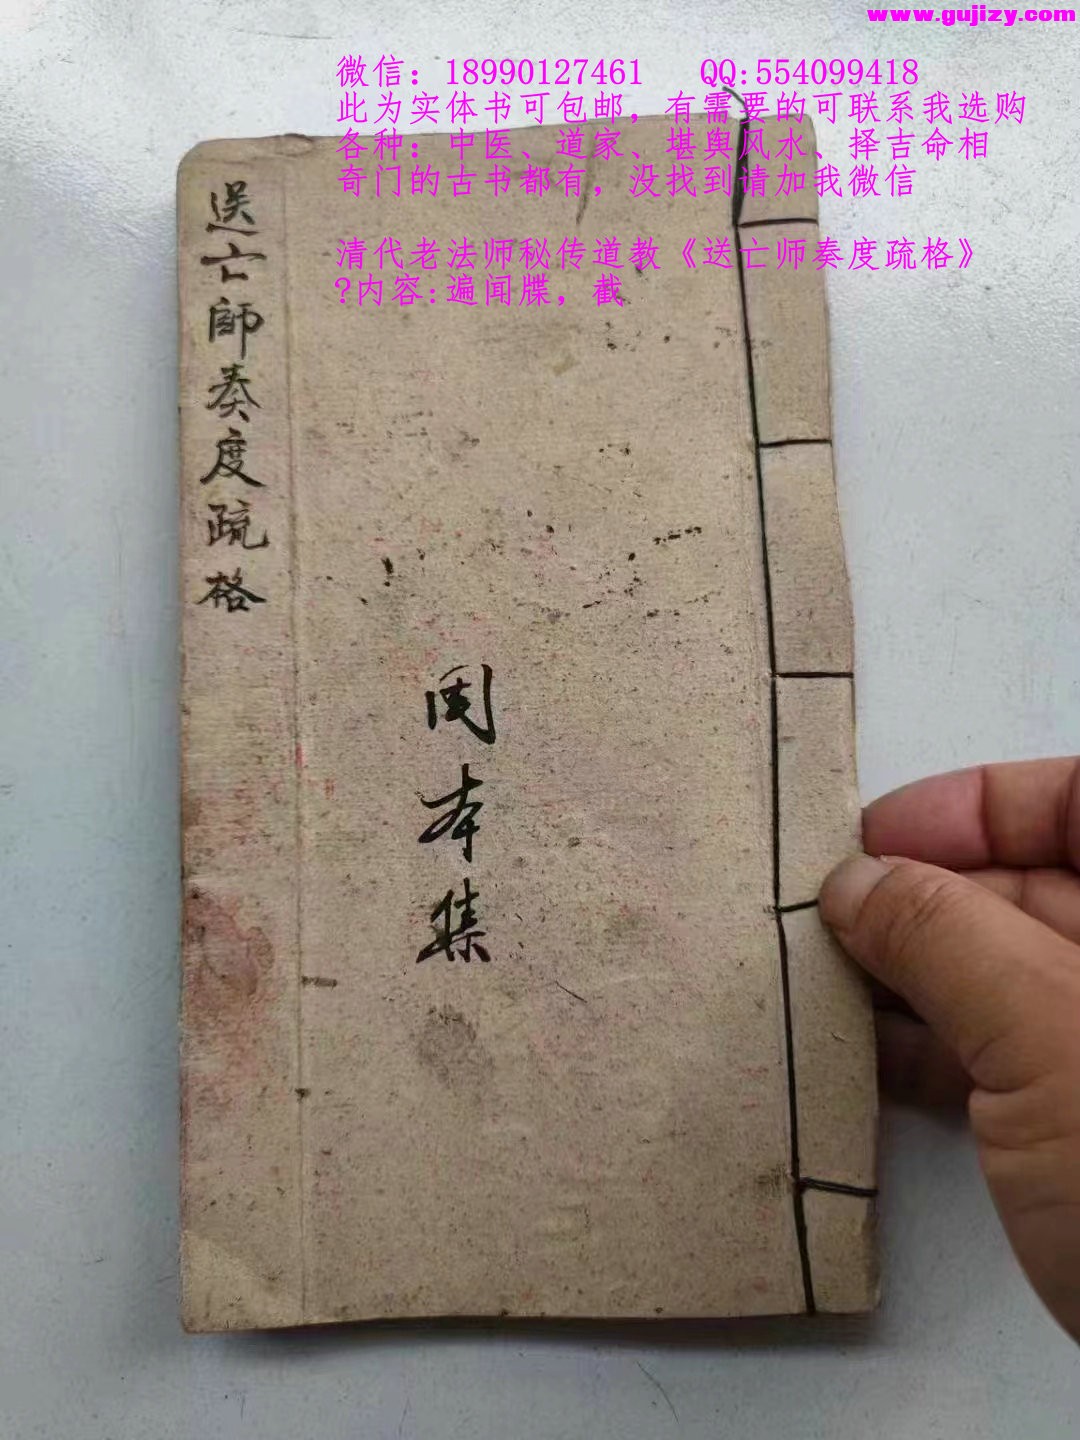 www.gujizy.com
微信：18990127461 QQ:554099418
此为实体书可包邮，有需要的可联系我选购
各种：中医、道家、堪舆风水、择吉命相
奇门的古书都有，没找到请加我微信
清代老法师秘传道教《送亡师奏度疏格》
?内容:遍闻牒，截
送亡師奏度疏格
周本集